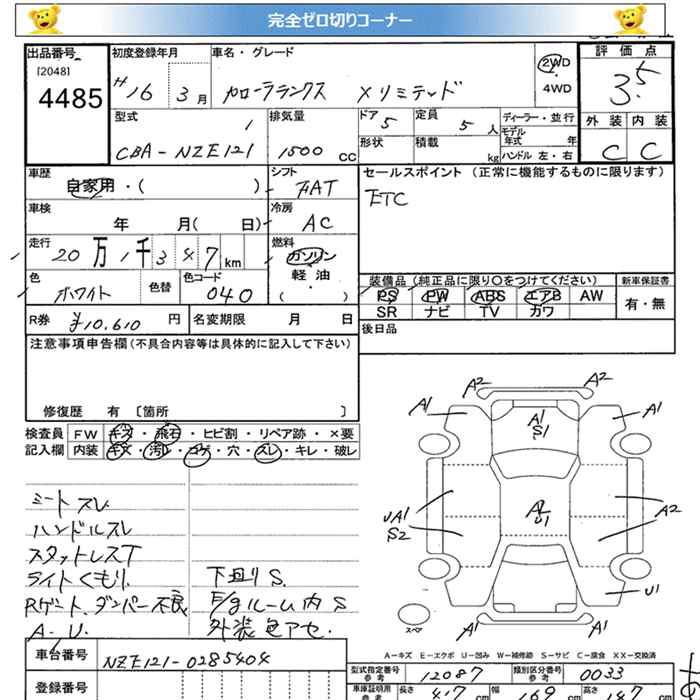 完全ゼロ切りコーナー
出品番号
[2048]
4485
初度登録年月
H16 3月
車名・グレード
カローラランクス Xリミテッド
2WD
4WD
評価点
3.5
外装 内装
C C
型式
CBA-NZE121
排気量
1500 cc
ドア
5
定員
5 人
形状
積載
kg
ディーラー・並行
モデル年式 年
ハンドル 左・右
車歴
自家用・( )
シフト
FAT
セールスポイント (正常に機能するものに限ります)
ETC
車検
年 月( 日)
冷房
AC
走行
20万1千347km
燃料
ガソリン
軽・油
( )
色
ホワイト
色替
色コード
040
装備品(純正品に限り○をつけてください)
PS PW ABS エアB AW
SR ナビ TV カワ
新車保証書
有・無
R券 ¥10,610 円
名変期限 月 日
後日品
注意事項申告欄(不具合内容等は具体的に記入して下さい)
修復歴 有 〔箇所 〕
検査員記入欄
FW キズ・飛石・ヒビ割・リペア跡・×要
内装 キズ・汚レ・コゲ・穴・スレ・キレ・破レ
シートスレ
ハンドルスレ
スタットレスT
ライトくもり
Rゲート、ダンパー不良
A.U.
下廻りS.
E/gルーム内S
外装色アセ.
A2 A2
A1 A1
A1
S1
A2
U1
UA1
S2
A2
U1
A1 A1
スペア
A-キズ E-エクボ U-凹み W-補修跡 S-サビ C-腐食 XX-交換済
車台番号
NZE121-0285404
登録番号
型式指定番号
参考
12087
類別区分番号
参考
0033
車庫証明用
参考
長さ 417 cm
幅 169 cm
高さ 147 cm